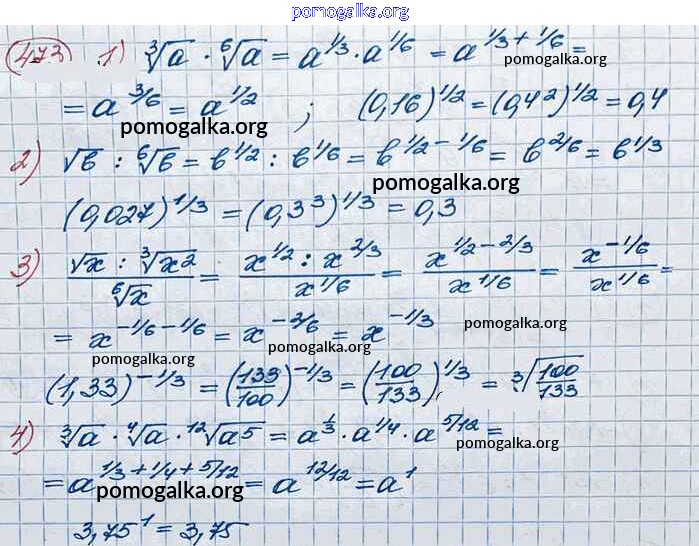 pomogalka.org
473 1) ∛a · ⁶√a = a^1/3 · a^1/6 = a^1/3 + 1/6 =
pomogalka.org
= a^3/6 = a^1/2 ; (0,16)^1/2 = (0,4^2)^1/2 = 0,4
pomogalka.org
2) √в : ⁶√в = в^1/2 : в^1/6 = в^1/2 - 1/6 = в^2/6 = в^1/3
pomogalka.org
(0,027)^1/3 = (0,3^3)^1/3 = 0,3
3) (√x : ∛x^2) / ⁶√x = (x^1/2 : x^2/3) / x^1/6 = x^1/2 - 2/3 / x^1/6 = x^-1/6 / x^1/6 =
= x^-1/6 - 1/6 = x^-2/6 = x^-1/3
pomogalka.org
pomogalka.org
pomogalka.org
(1,33)^-1/3 = (133/100)^-1/3 = (100/133)^1/3 = ∛100/133
4) ∛a · ⁴√a · ¹²√a5 = a^1/3 · a^1/4 · a^5/12 =
pomogalka.org
= a^1/3 + 1/4 + 5/12 = a^12/12 = a^1
pomogalka.org
pomogalka.org
3,75^1 = 3,75